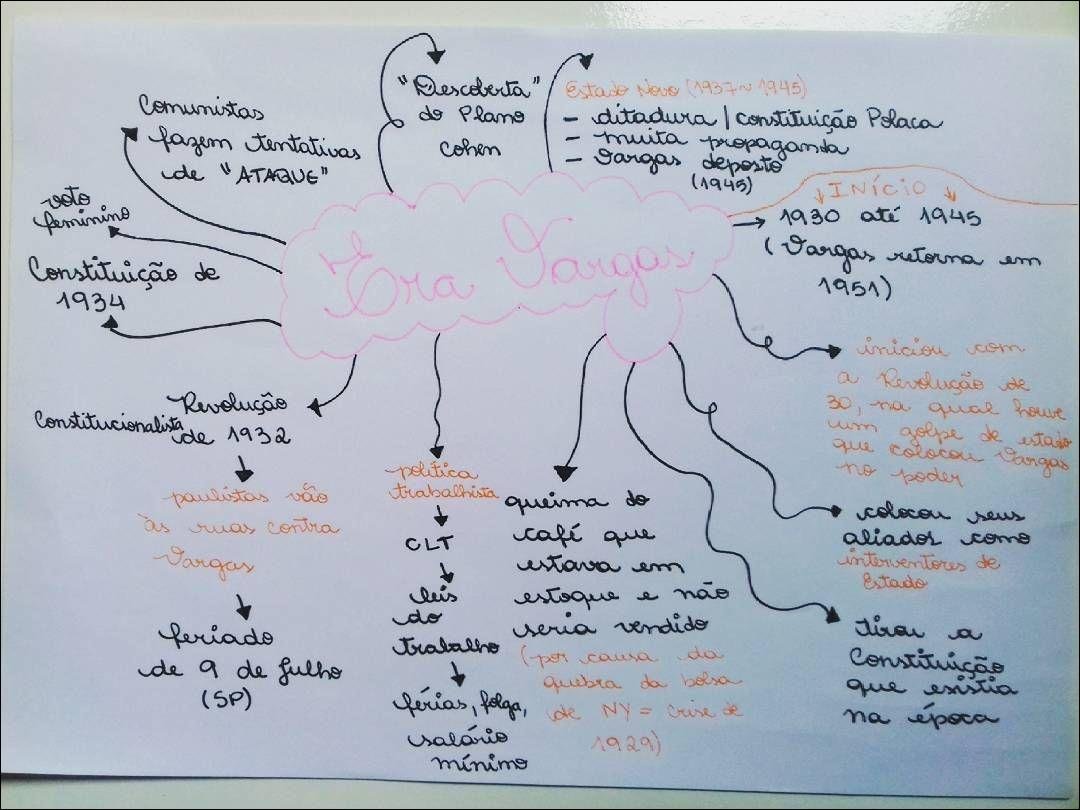 Era Vargas
↓ INÍCIO ↓
1930 até 1945
(Vargas retorna em
1951)
iniciou com
a Revolução de
30, na qual houve
um golpe de estado
que colocou Vargas
no poder
colocou seus
aliados como
interventores de
Estado
tirou a
Constituição
que existia
na época
queima do
café que
estava em
estoque e não
seria vendido
(por causa da
quebra da bolsa
de NY = crise de
1929)
política
trabalhista
CLT
leis
do
trabalho
férias, folga,
salário
mínimo
Revolução
Constitucionalista
de 1932
paulistas vão
às ruas contra
Vargas
feriado
de 9 de Julho
(SP)
Constituição de
1934
voto
feminino
Comunistas
fazem tentativas
de "ATAQUE"
"Descoberta"
do Plano
Cohen
Estado Novo (1937~1945)
- ditadura / constituição Polaca
- muita propaganda
- Vargas deposto
(1945)